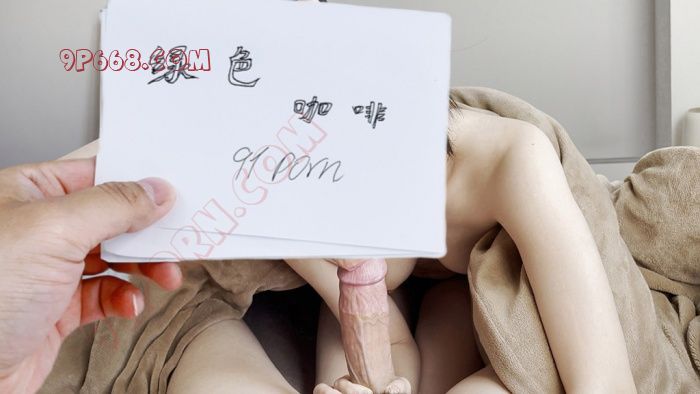 9P668.COM
绿色
咖啡
91 porn
PORN.COM